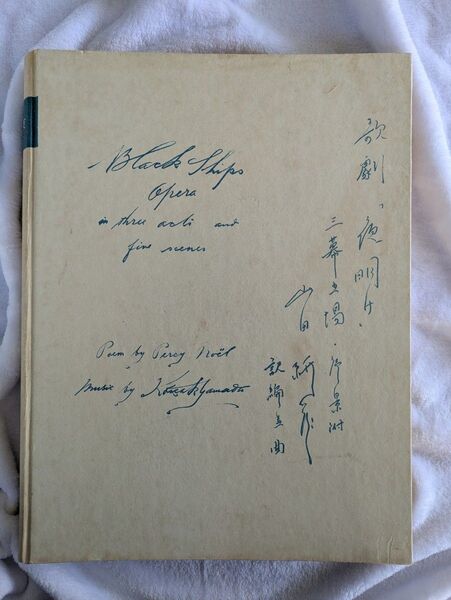 Black Ships
Opera
in three acts and
five scenes
Poem by Percy Noël
Music by Kósçak Yamada
歌劇「夜明け」
三幕五場・序景附
山田
耕筰
訳編並曲